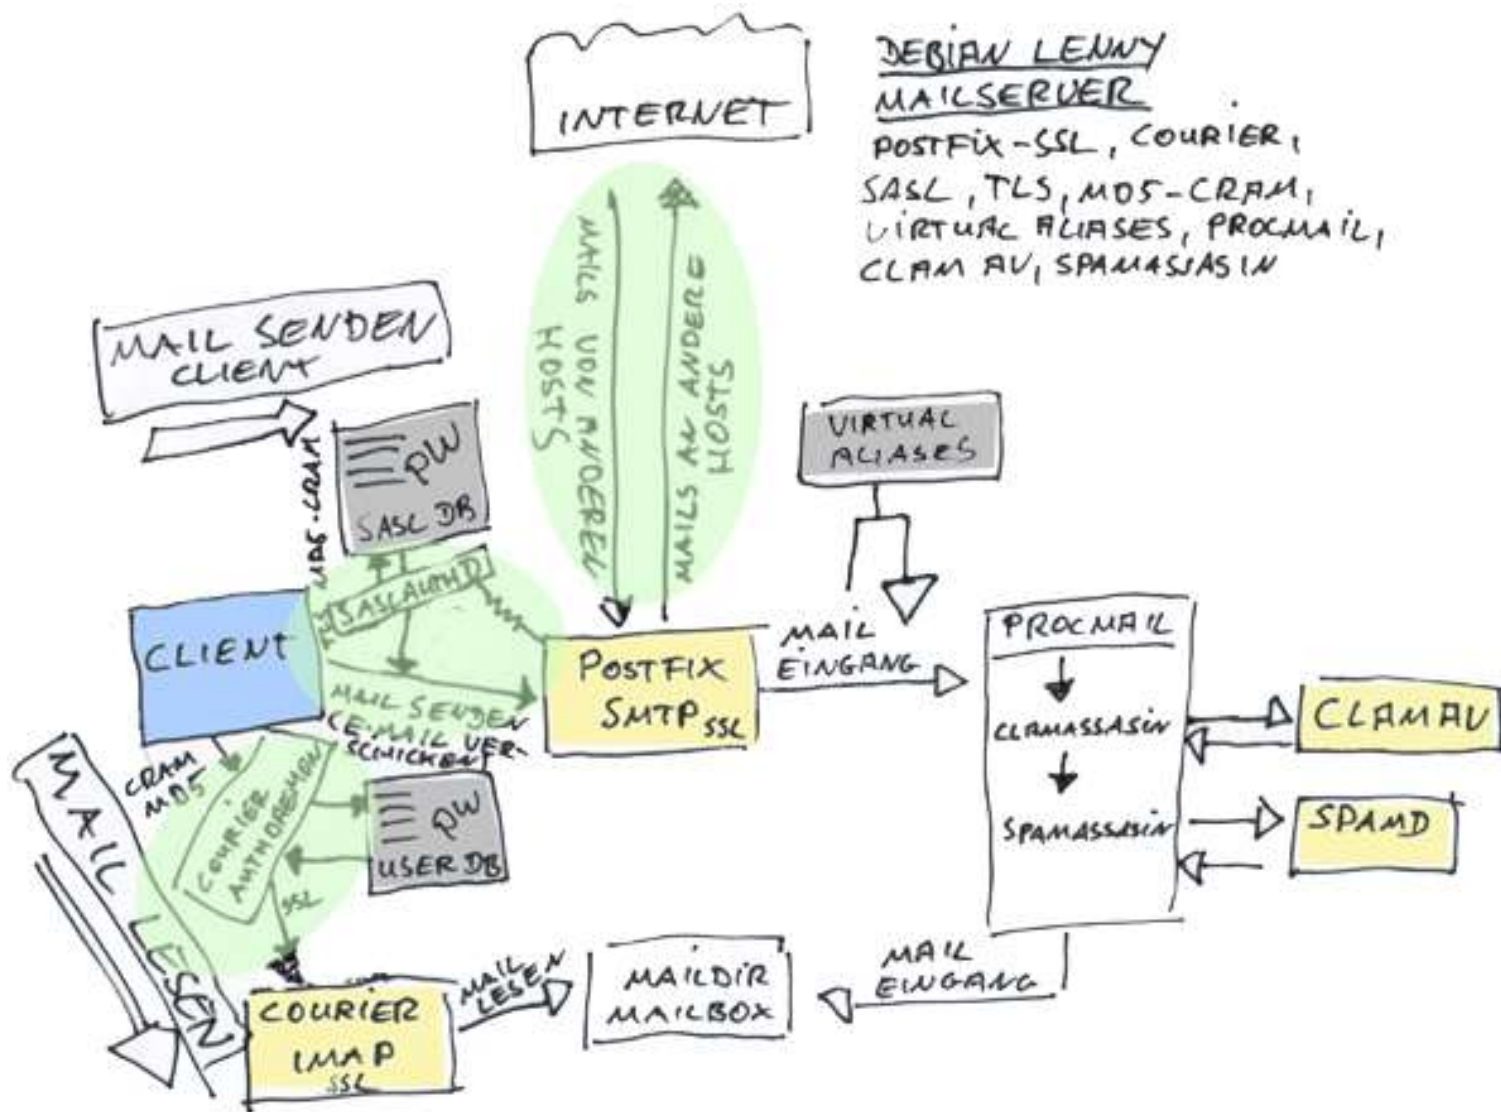 INTERNET
DEBIAN LENNY
MAILSERVER
POSTFIX-SSL, COURIER,
SASL, TLS, MD5-CRAM,
VIRTUAL ALIASES, PROCMAIL,
CLAM AV, SPAMASSASIN
MAIL SENDEN
CLIENT
MAILS VON ANDEREN
HOSTS
MAILS AN ANDERE
HOSTS
MD5-CRAM
PW
SASL DB
SASLAUTHD
VIRTUAL
ALIASES
CLIENT
MAIL SENDEN
(E-MAIL VER-
SCHICKEN)
POSTFIX
SMTP SSL
MAIL
EINGANG
PROCMAIL
CLAMASSASIN
SPAMASSASIN
CLAMAV
SPAMD
CRAM
MD5
COURIER
PW
USER DB
SSL
MAIL LESEN
COURIER
IMAP
SSL
MAIL
LESEN
MAILDIR
MAILBOX
MAIL
EINGANG